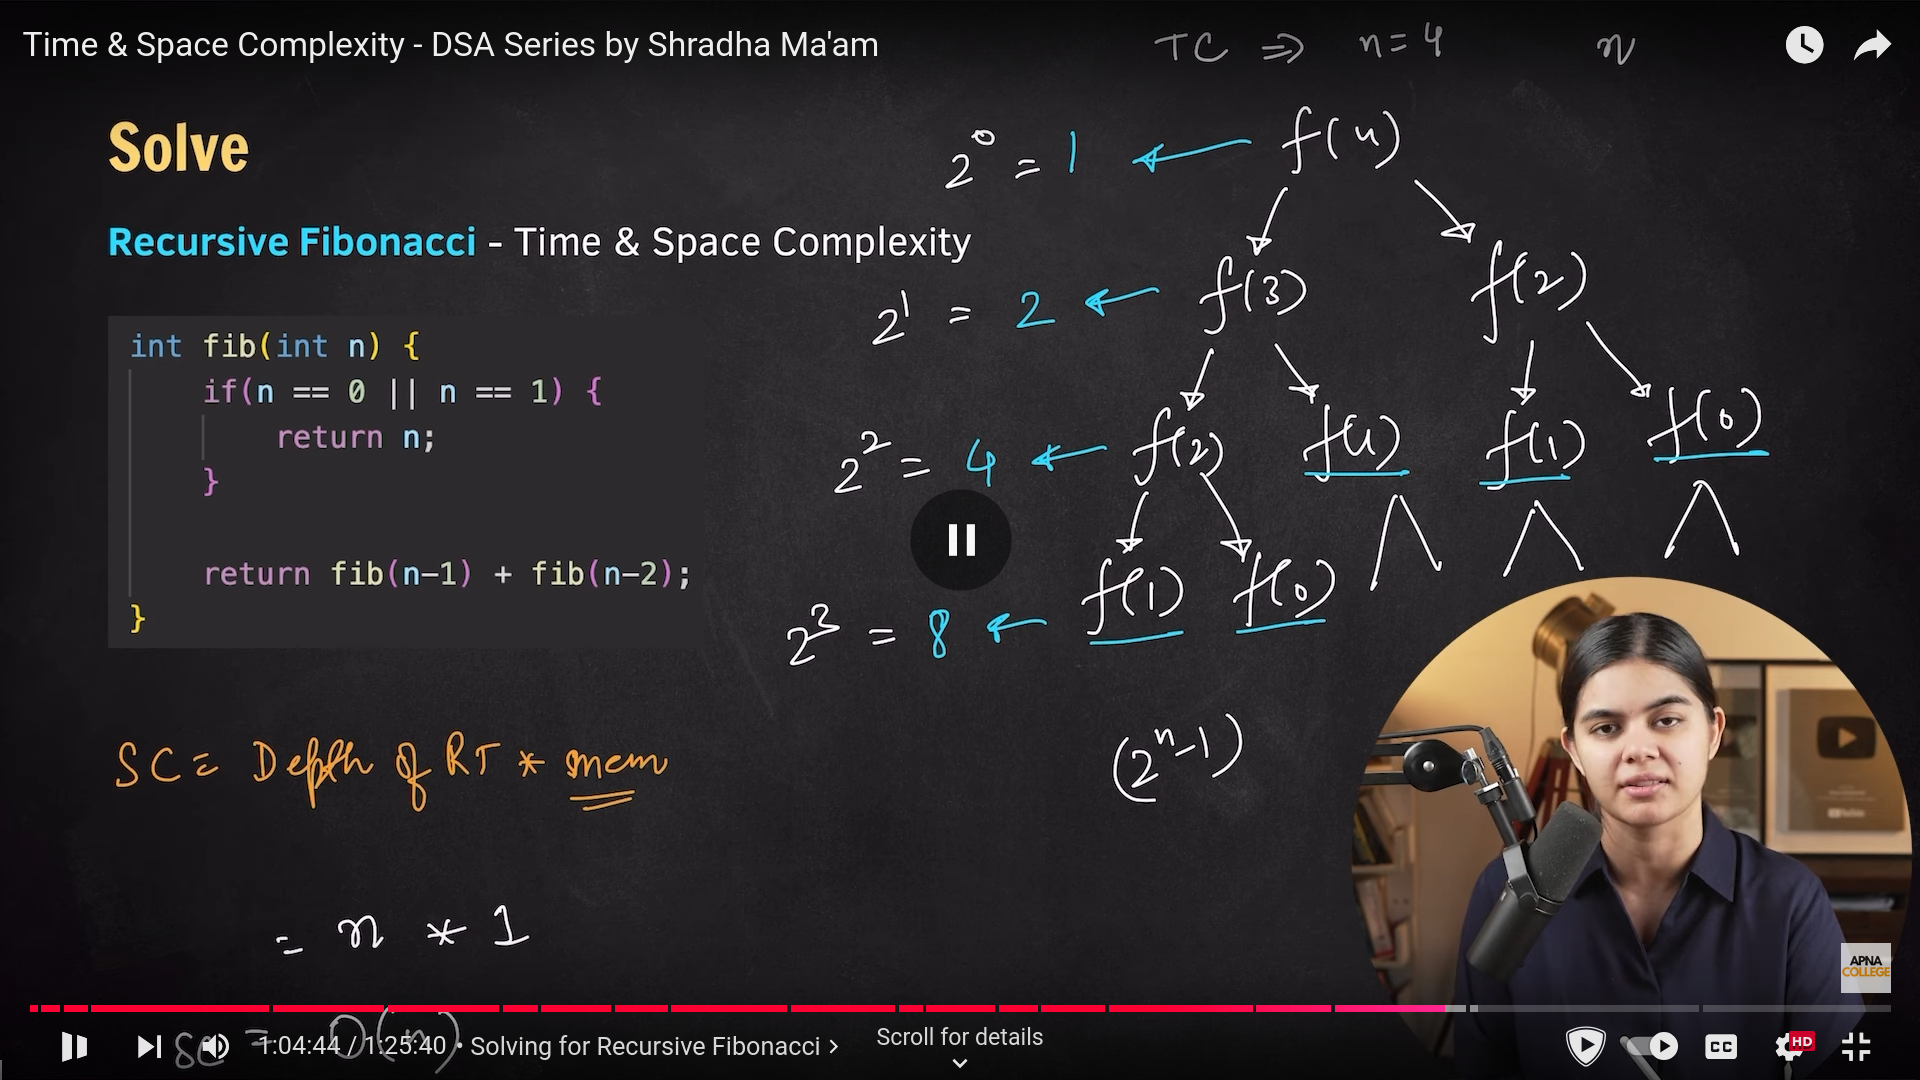 Time & Space Complexity - DSA Series by Shradha Ma'am
TC ⇒ n=4 n
Solve
2⁰ = 1 ← f(4)
Recursive Fibonacci - Time & Space Complexity
2¹ = 2 ← f(3) f(2)
int fib(int n) {
if(n == 0 || n == 1) {
return n;
}
return fib(n-1) + fib(n-2);
}
2² = 4 ← f(2) f(1) f(1) f(0)
2³ = 8 ← f(1) f(0)
(2ⁿ-1)
SC = Depth of RT * mem
= n * 1
SC = O(n)
APNA
COLLEGE
1:04:44 / 1:25:40 • Solving for Recursive Fibonacci >
Scroll for details
CC
HD